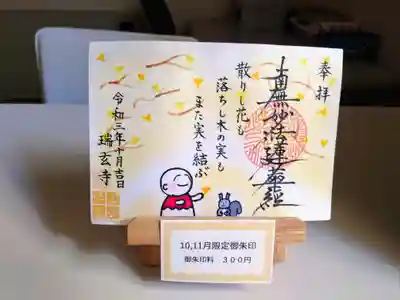 奉拝
南無妙法蓮華経
散りし花も
落ちし木の実も
また実を結ぶ
令和三年十月吉日
瑞玄寺
10,11月限定御朱印
御朱印料 300円